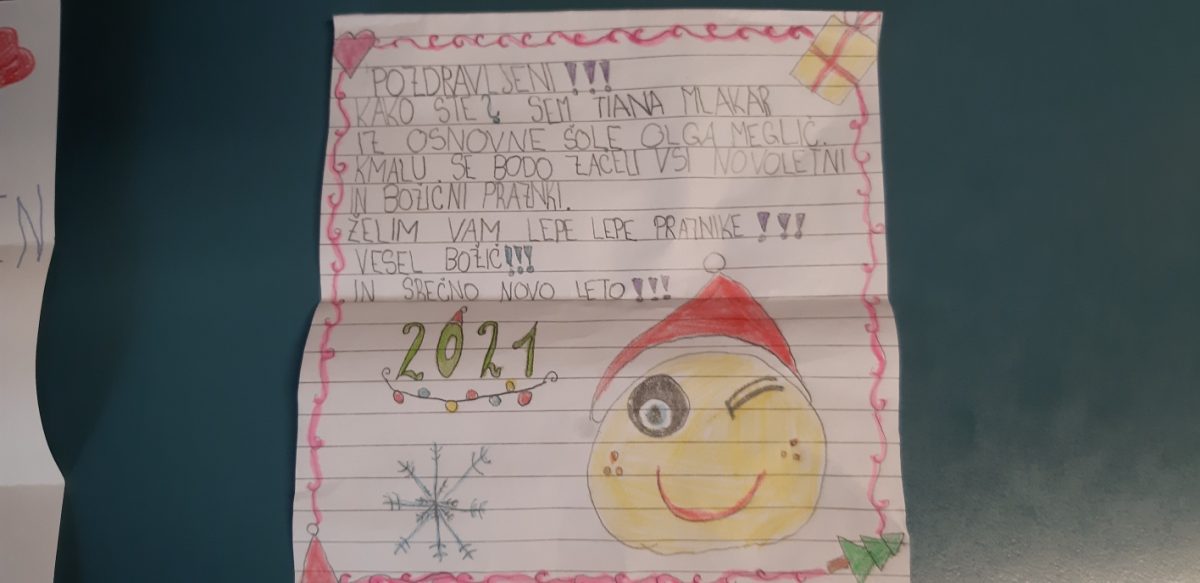 POZDRAVLJENI!!!
KAKO STE? SEM TIANA MLAKAR
IZ OSNOVNE ŠOLE OLGA MEGLIČ.
KMALU SE BODO ZAČELI VSI NOVOLETNI
IN BOŽIČNI PRAZNKI.
ŽELIM VAM LEPE LEPE PRAZNIKE!!!
VESEL BOŽIČ!!!
IN SREČNO NOVO LETO!!!
2021
EN